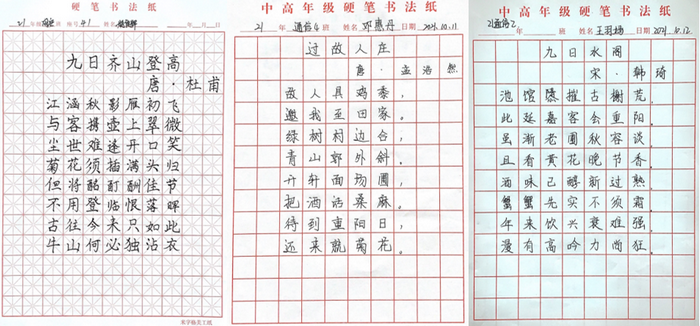 硬笔书法纸
21年级 座号41 姓名 年 月 日
九日齐山登高
唐·杜甫
江涵秋影雁初飞
与客携壶上翠微
尘世难逢开口笑
菊花须插满头归
但将酩酊酬佳节
不用登临恨落晖
古往今来只如此
牛山何必独沾衣
米字格美工纸
中高年级硬笔书法纸
21 年 通信4 班 姓名 邓惠丹 日期 2021.10.11
过故人庄
唐·孟浩然
故人具鸡黍，
邀我至田家。
绿树村边合，
青山郭外斜。
开轩面场圃，
把酒话桑麻。
待到重阳日，
还来就菊花。
中高年级硬笔书法纸
21通信2 年 班 姓名 王羽 日期 2021.10.12
九日水阁
宋·韩琦
池馆隳摧古榭荒，
此延嘉客会重阳。
虽渐老圃秋容谈，
且看黄花晚节香。
酒味已醇新过熟，
蟹蟹先实不须霜。
年来饮兴衰难强，
漫有高吟力尚狂。